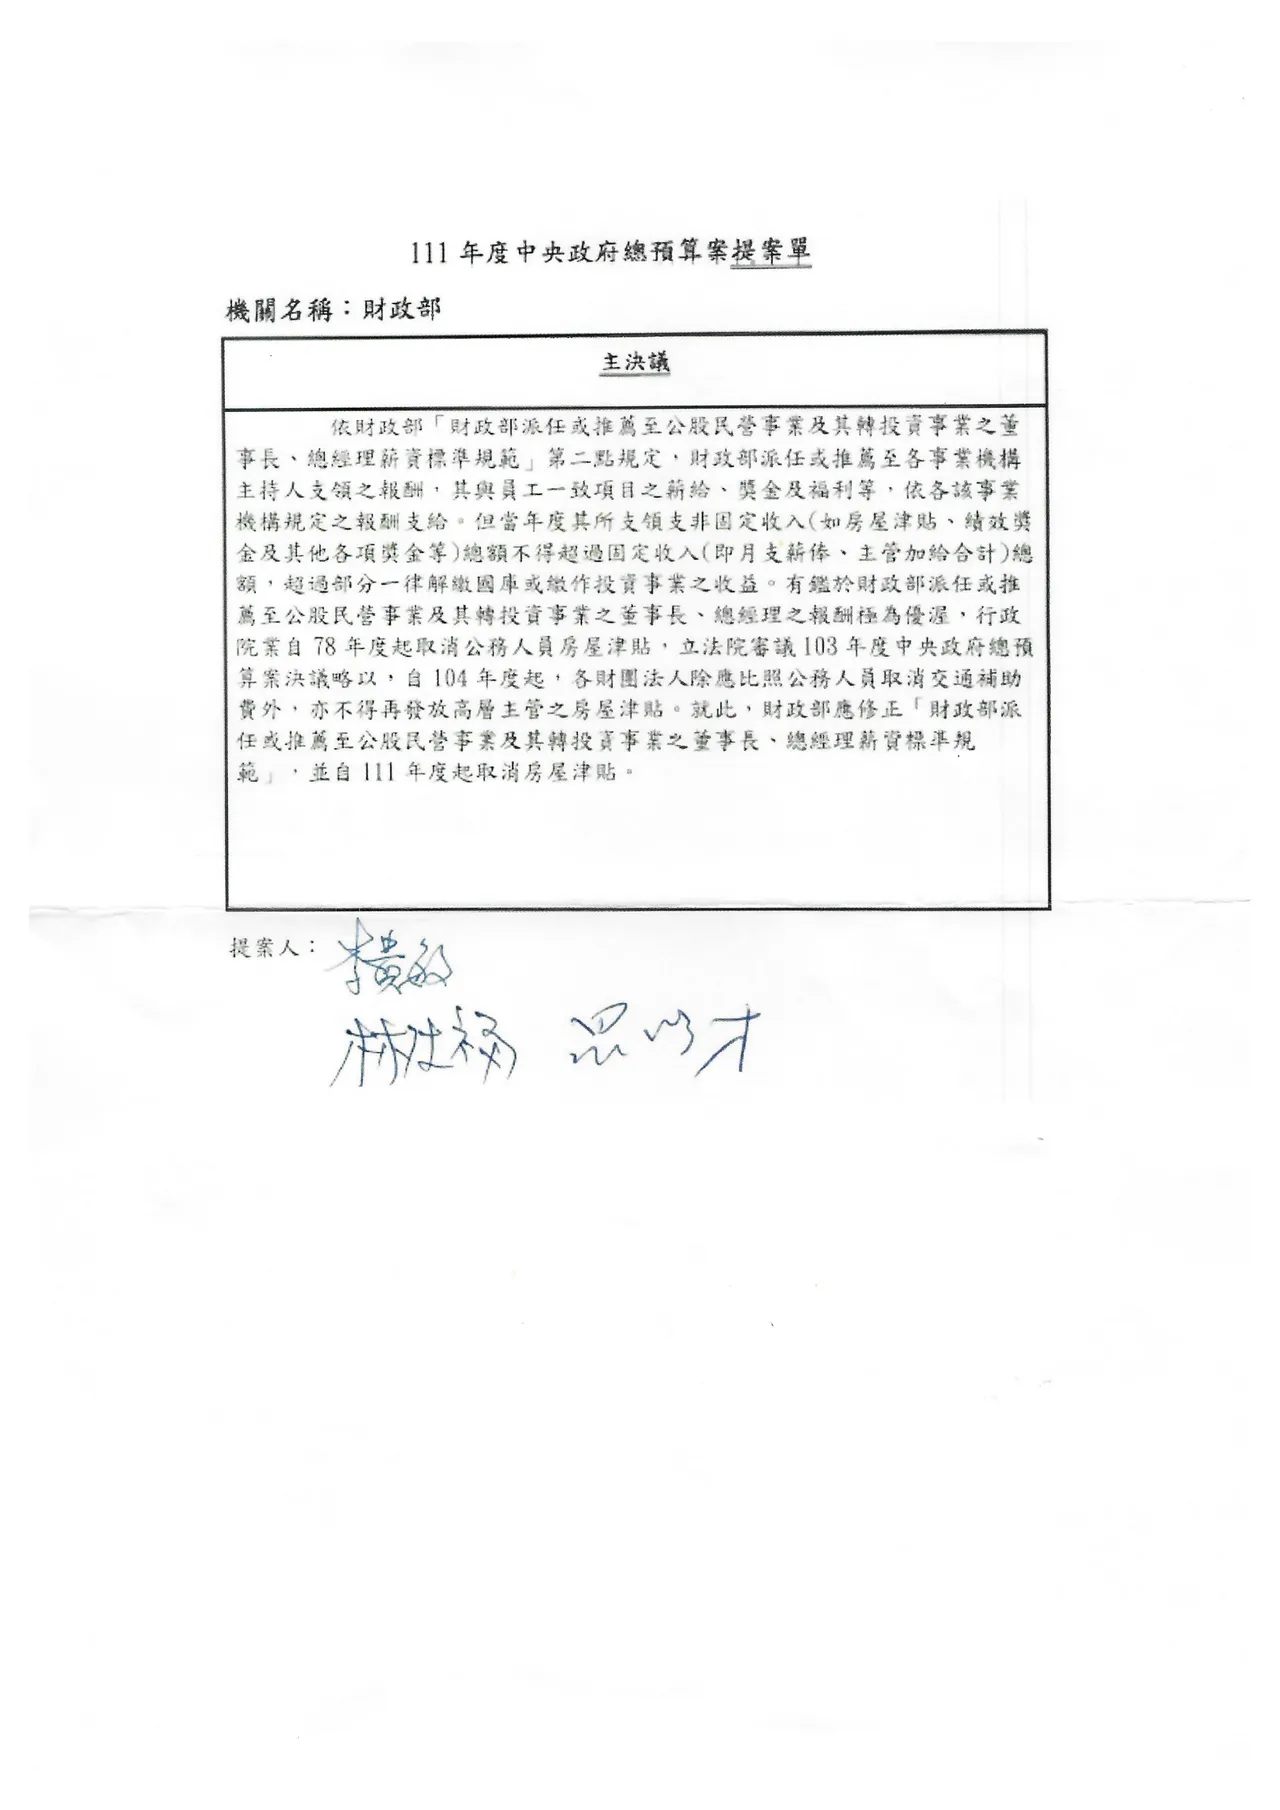 111 年度中央政府總預算案提案單
機關名稱：財政部
主決議
依財政部「財政部派任或推薦至公股民營事業及其轉投資事業之董
事長、總經理薪資標準規範」第二點規定，財政部派任或推薦至各事業機構
主持人支領之報酬，其與員工一致項目之薪給、獎金及福利等，依各該事業
機構規定之報酬支給。但當年度其所支領支非固定收入(如房屋津貼、績效獎
金及其他各項獎金等)總額不得超過固定收入(即月支薪俸、主管加給合計)總
額，超過部分一律解繳國庫或繳作投資事業之收益。有鑑於財政部派任或推
薦至公股民營事業及其轉投資事業之董事長、總經理之報酬極為優渥，行政
院業自 78 年度起取消公務人員房屋津貼，立法院審議 103 年度中央政府總預
算案決議略以，自 104 年度起，各財團法人除應比照公務人員取消交通補助
費外，亦不得再發放高層主管之房屋津貼。就此，財政部應修正「財政部派
任或推薦至公股民營事業及其轉投資事業之董事長、總經理薪資標準規
範」，並自 111 年度起取消房屋津貼。
提案人：李貴敏